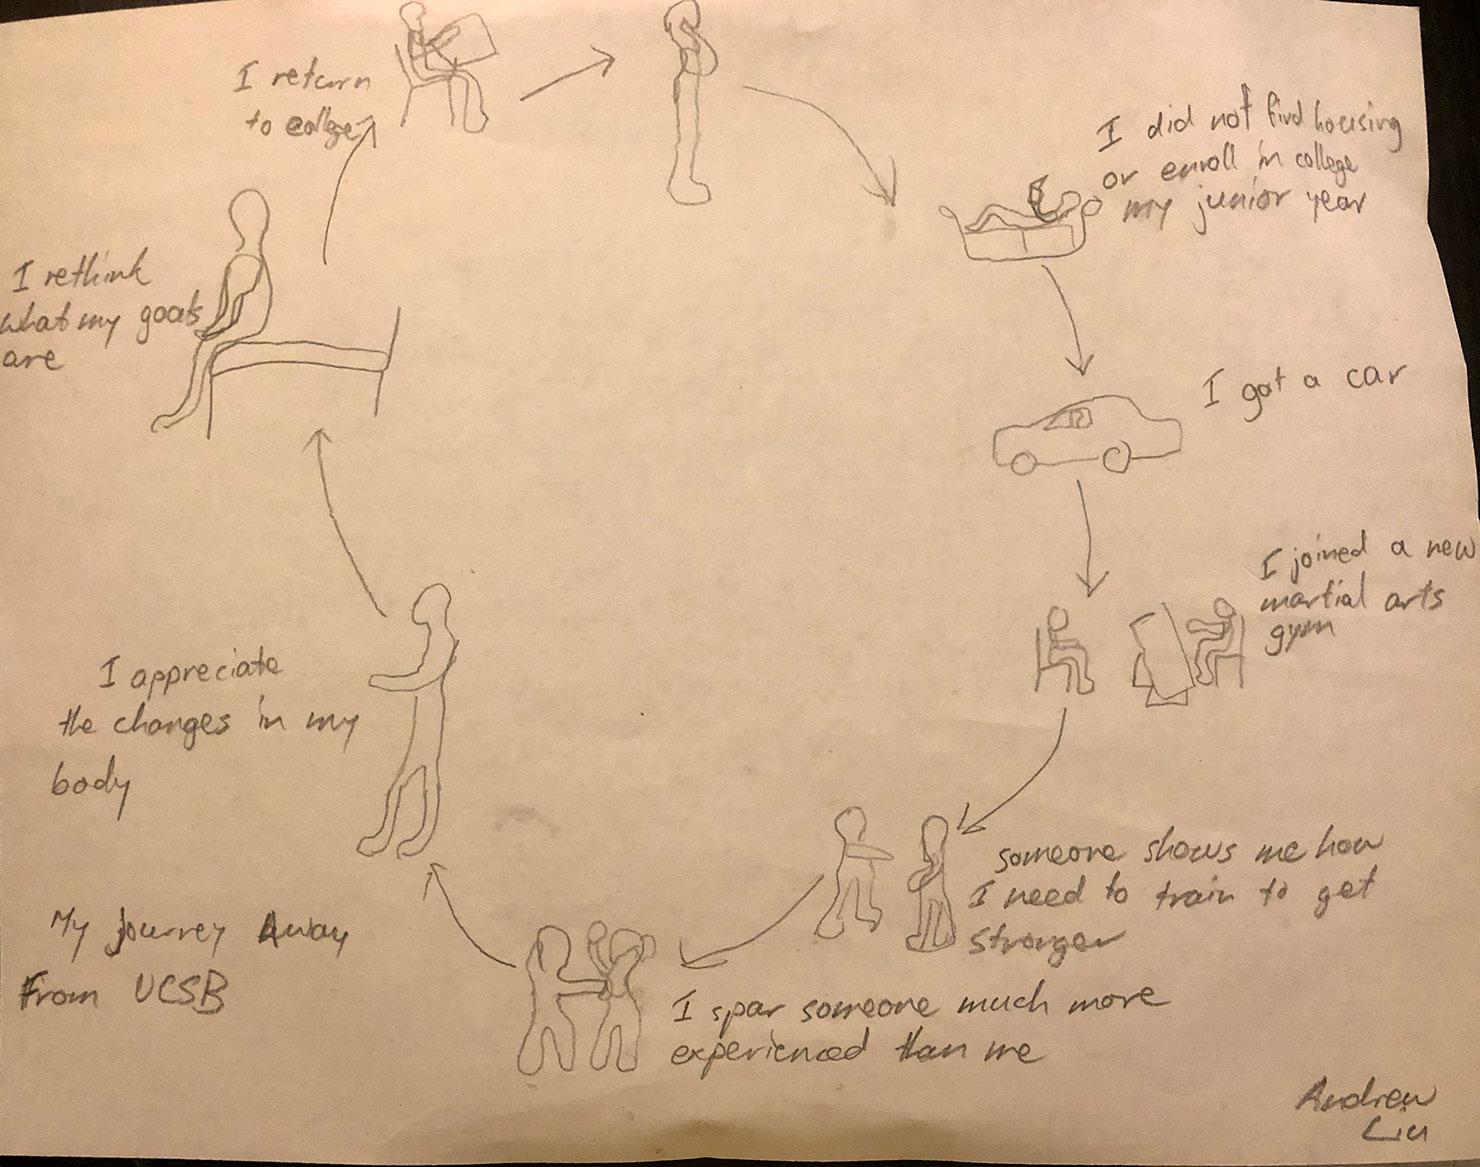 I return
to college
I did not find housing
or enroll in college
my junior year
I got a car
I joined a new
martial arts
gym
someone shows me how
I need to train to get
stronger
I spar someone much more
experienced than me
I appreciate
the changes in my
body
I rethink
what my goals
are
My journey Away
From UCSB
Andrew
Liu